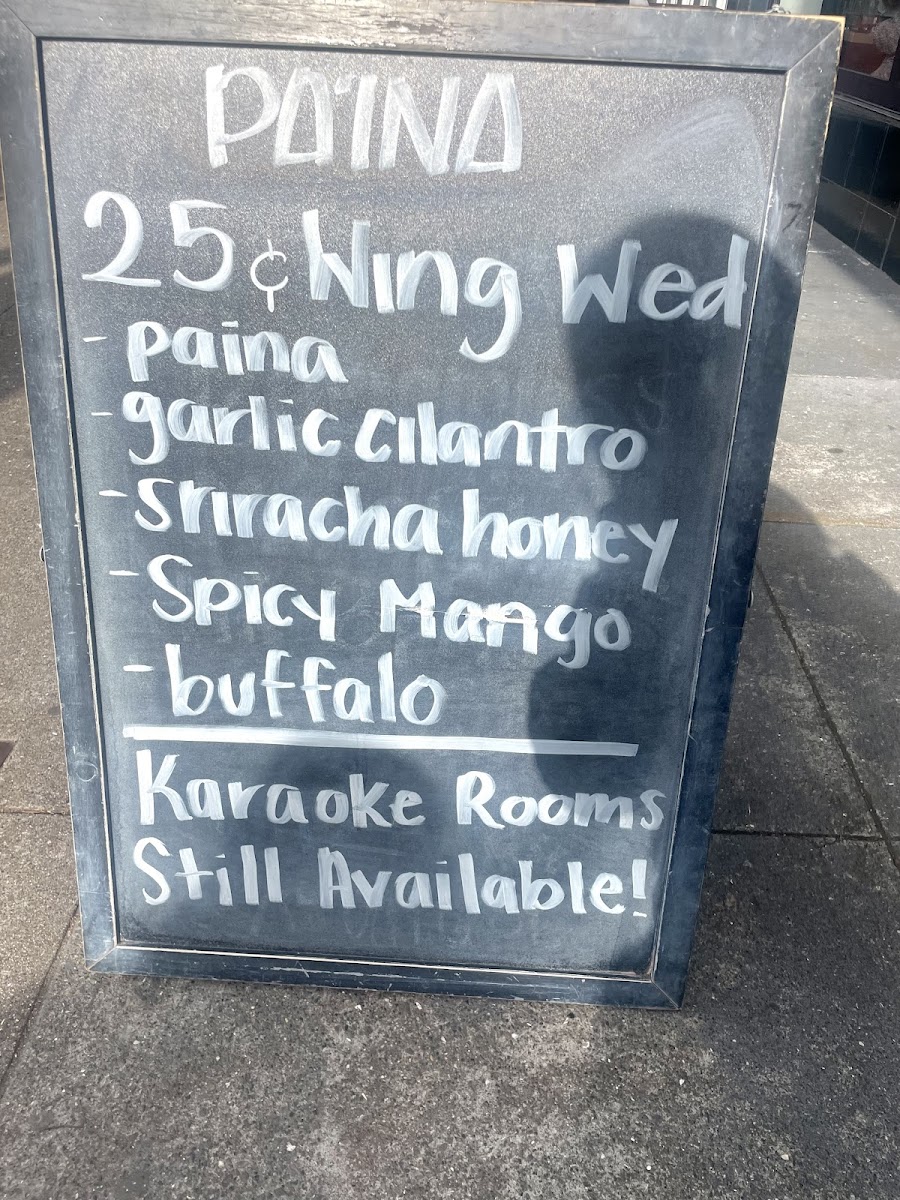 PA'INA
25¢ Wing Wed
- paina
- garlic cilantro
- sriracha honey
- Spicy Mango
- buffalo
Karaoke Rooms
Still Available!